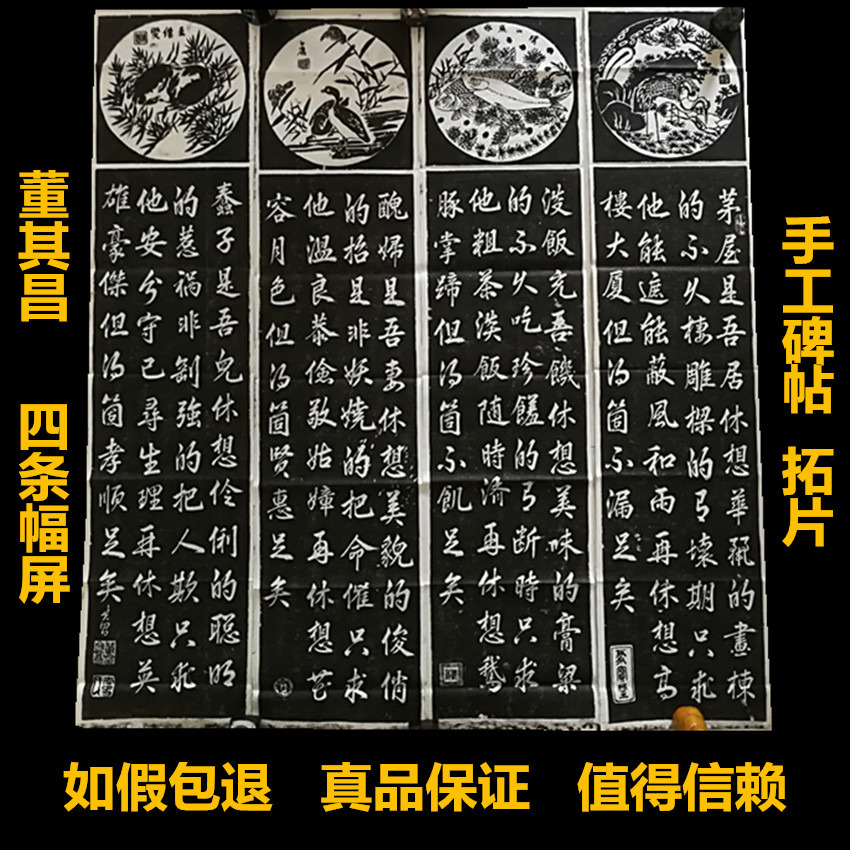 董其昌 四条幅屏
手工碑帖 拓片
茅屋是吾居休想華麗的畫棟
的不久棲雕樑的有壞期只求
他能遮能蔽風和雨再休想高
樓大厦但得箇不漏足矣
淡飯充吾饑休想美味的膏粱
的不久吃珍饈的有断時只求
他粗茶淡飯随時濟再休想鵝
豚掌蹄但得箇不飢足矣
醜婦是吾妻休想美貌的俊俏
的招是非妖嬈的把命催只求
他溫良恭儉敬姑嫜再休想花
容月色但得箇賢惠足矣
蠢子是吾兒休想伶俐的聰明
的惹禍非剛強的把人欺只求
他安分守己尋生理再休想英
雄豪傑但得箇孝順足矣
如假包退 真品保证 值得信赖